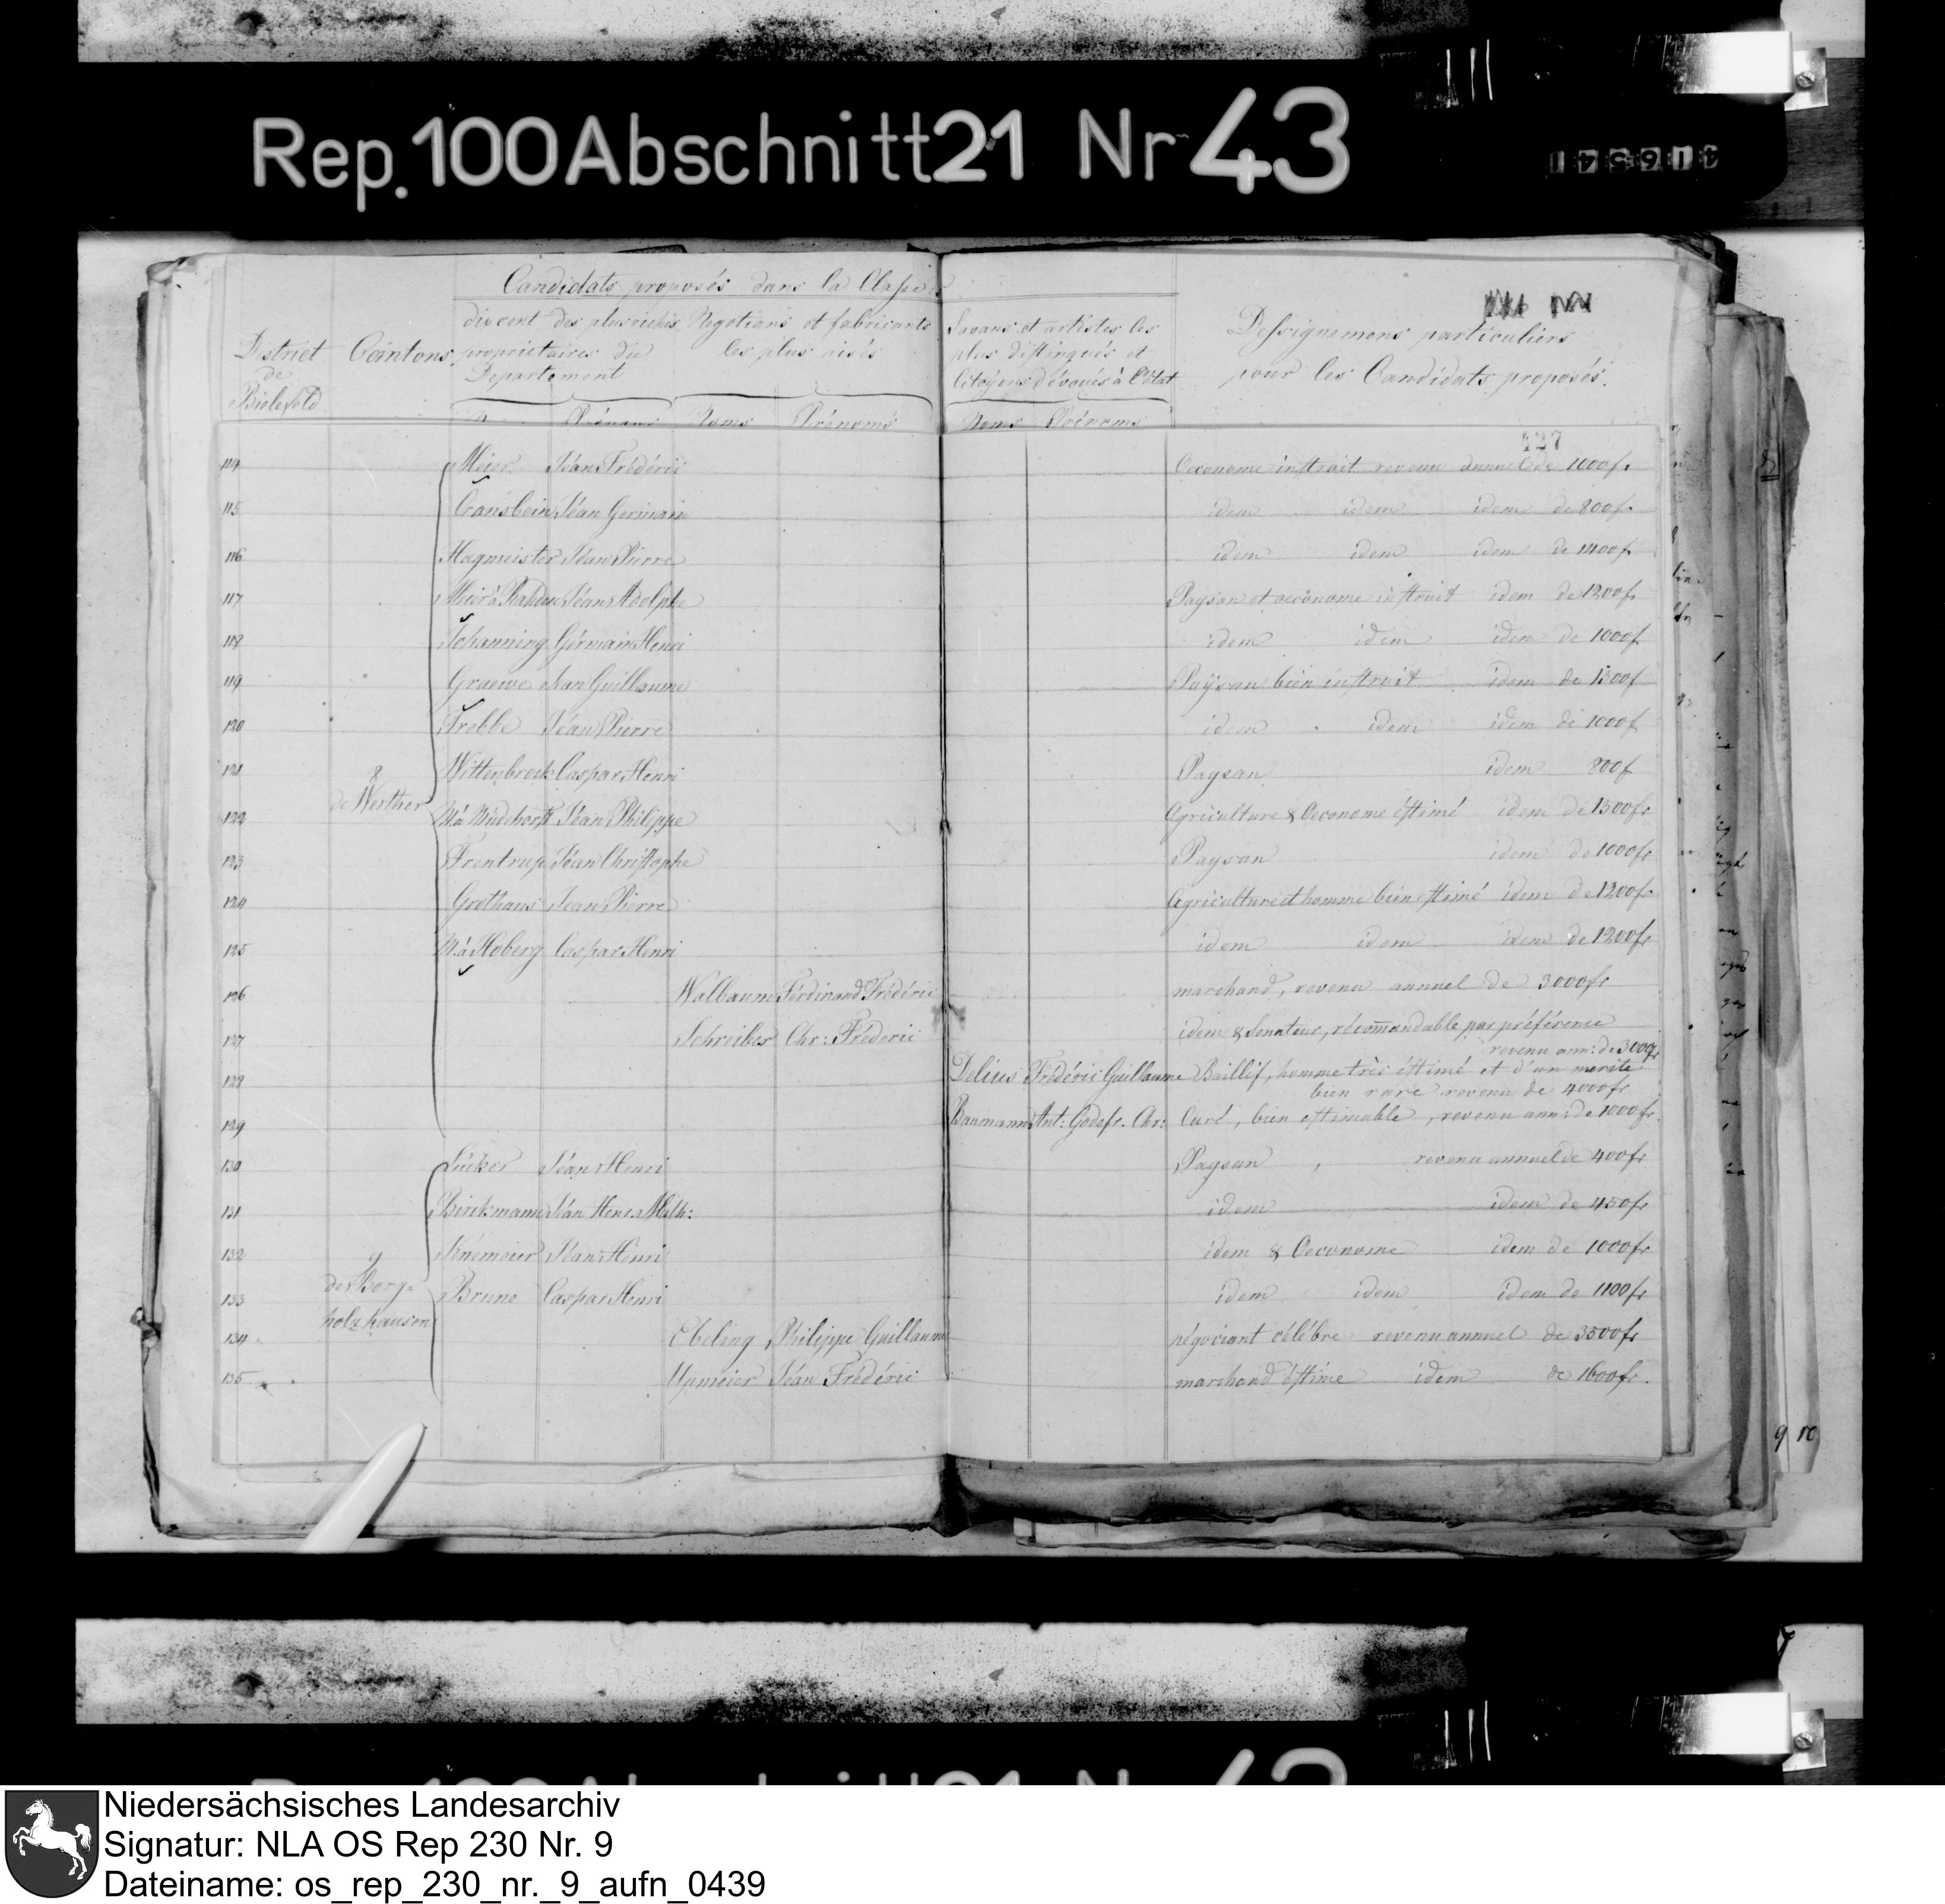 Rep. 100 Abschnitt 21 Nr 43
Candidats proposés dans la Classe
District de Bielefeld
Cantons
dixcent des plus riches propriétaires du Departement
Negotians et fabricants les plus aisés
Savans et artistes les plus distingués et Citoyens dévoués à l'état
Renseignemens particuliers pour les Candidats proposés.
Prénoms Noms Prénoms Noms Prénoms
427
8 de Werther
114 Meier Jéan Frédéric Oeconome instruit revenu annuel de 1000 fr
115 Jéan Germain idem idem idem de 800 fr
116 Hagmeister Jéan Pierre idem idem idem de 1400 fr
117 Meier à Jéan Adolphe Paysan et oeconome instruit idem de 1200 fr
118 Schanning Gérmain Henri idem idem idem de 1000 f
119 Graewe Jean Guillaume Paÿsan bien instruit idem de 1500 f
120 Trebbe Jéan Pierre idem idem idem de 1000 f
121 Wittenbrock Caspar Henri Paysan idem 800 f
122 M. à Müdehorst Jéan Philippe Agriculture & Oeconome éstimé idem de 1500 fr
123 Frentrup Jéan Christophe Paysan idem de 1000 fr
124 Grothaus Jean Pierre Agriculture et homme bien estimé idem de 1200 fr
125 M. à Hoberg Caspar Henri idem idem idem de 1200 fr
126 Walbaum Ferdinand Frédéric marchand, revenu annuel de 3000 fr
127 Schreiber Chr: Fréderic idem & Senateur, récom̅andable par préférence
revenu ann: de 3000 fr
128 Delius Frédéric Guillaume Baillif, homme très éstimé et d'un merite
bien rare revenu de 4000 fr
129 Baumann Ant: Godefr. Chr: Curé, bien estimable, revenu ann: de 1000 fr.
9 de Borgholzhausen
130 Lücker Jéan Henri Paysan, revenu annuel de 400 fr
131 Birckmann Jéan Henr. Math: idem idem de 450 fr
132 Knemeier Jéan Henri idem & Oeconome idem de 1000 fr
133 Brune Caspar Henri idem idem idem de 1100 fr
134 Ebeling Philippe Guillaume négociant célébre revenu annuel de 3500 fr
135 Upmeier Jéan Frédéric marchand éstime idem de 1600 fr.
9 10
Niedersächsisches Landesarchiv
Signatur: NLA OS Rep 230 Nr. 9
Dateiname: os_rep_230_nr._9_aufn_0439